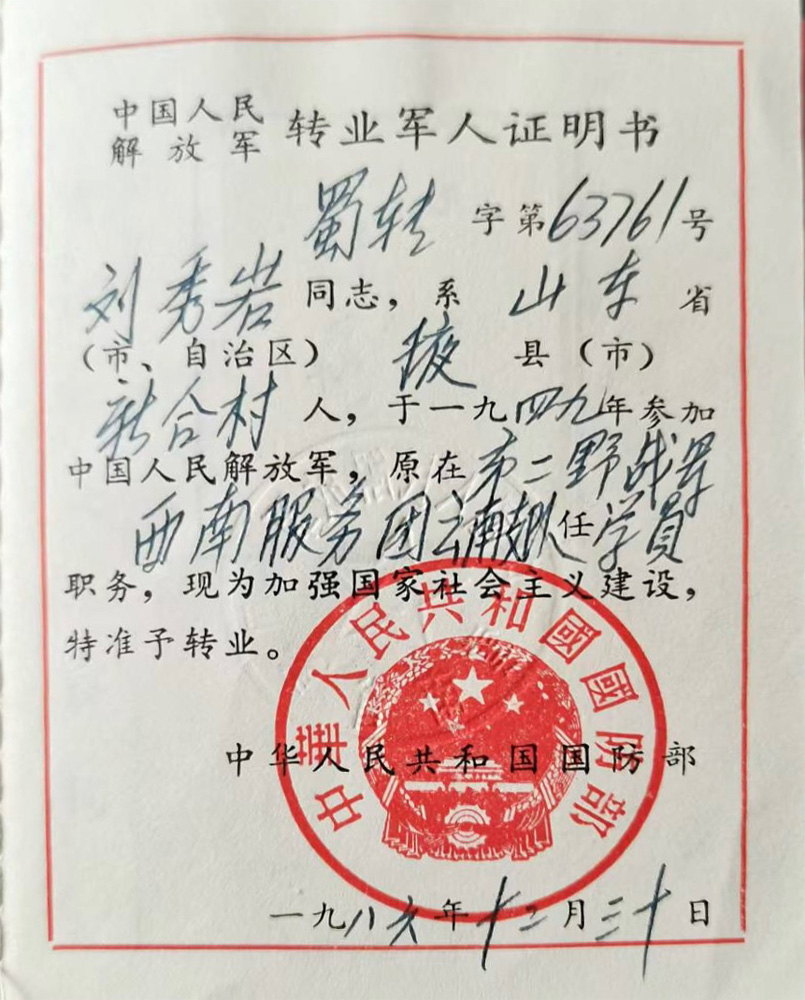 中国人民解放军 转业军人证明书
蜀转 字第63761号
刘秀岩同志，系 山东 省
（市、自治区） 掖 县（市）
新合村 人，于一九四九年参加
中国人民解放军，原在第二野战军
西南服务团云南支队任学员
职务，现为加强国家社会主义建设，
特准予转业。
中华人民共和国国防部
中华人民共和國國防部
一九八六年十二月三十日